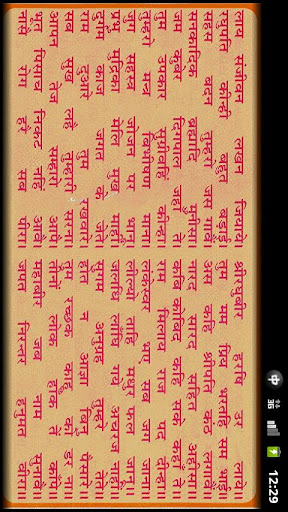 लाय संजीवन लखन जियाये। श्रीरघुबीर हरषि उर लाये॥
रघुपति कीन्ही बहुत बड़ाई। तुम मम प्रिय भरतहि सम भाई॥
सहस बदन तुम्हरो जस गावैं। अस कहि श्रीपति कंठ लगावैं॥
सनकादिक ब्रह्मादि मुनीसा। नारद सारद सहित अहीसा॥
जम कुबेर दिगपाल जहाँ ते। कबि कोबिद कहि सके कहाँ ते॥
तुम उपकार सुग्रीवहिं कीन्हा। राम मिलाय राज पद दीन्हा॥
तुम्हरो मन्त्र बिभीषण माना। लंकेस्वर भए सब जग जाना॥
जुग सहस्र जोजन पर भानू। लील्यो ताहि मधुर फल जानू॥
प्रभु मुद्रिका मेलि मुख माहीं। जलधि लांघि गये अचरज नाहीं॥
दुर्गम काज जगत के जेते। सुगम अनुग्रह तुम्हरे तेते॥
राम दुआरे तुम रखवारे। होत न आज्ञा बिनु पैसारे॥
सब सुख लहै तुम्हारी सरना। तुम रच्छक काहू को डर ना॥
आपन तेज सम्हारो आपै। तीनों लोक हाँक तें काँपै॥
भूत पिसाच निकट नहिं आवै। महाबीर जब नाम सुनावै॥
नासे रोग हरे सब पीरा। जपत निरन्तर हनुमत बीरा॥
3G
12:29